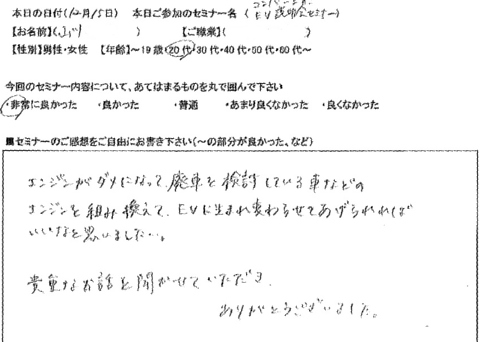 コンバージョン
本日の日付(12月15日) 本日ご参加のセミナー名(EV説明会セミナー)
【お名前】( ) 【ご職業】( )
【性別】男性・女性 【年齢】~19歳・20代・30代・40代・50代・60代~
今回のセミナー内容について、あてはまるものを丸で囲んで下さい
・非常に良かった ・良かった ・普通 ・あまり良くなかった ・良くなかった
■セミナーのご感想をご自由にお書き下さい(~の部分が良かった、など)
エンジンがダメになって、廃車を検討している車などの
エンジンを組み換えて、EVに生まれ変わらせてあげられれば
いいなと思いました…。
貴重なお話を聞かせていただき
ありがとうございました。